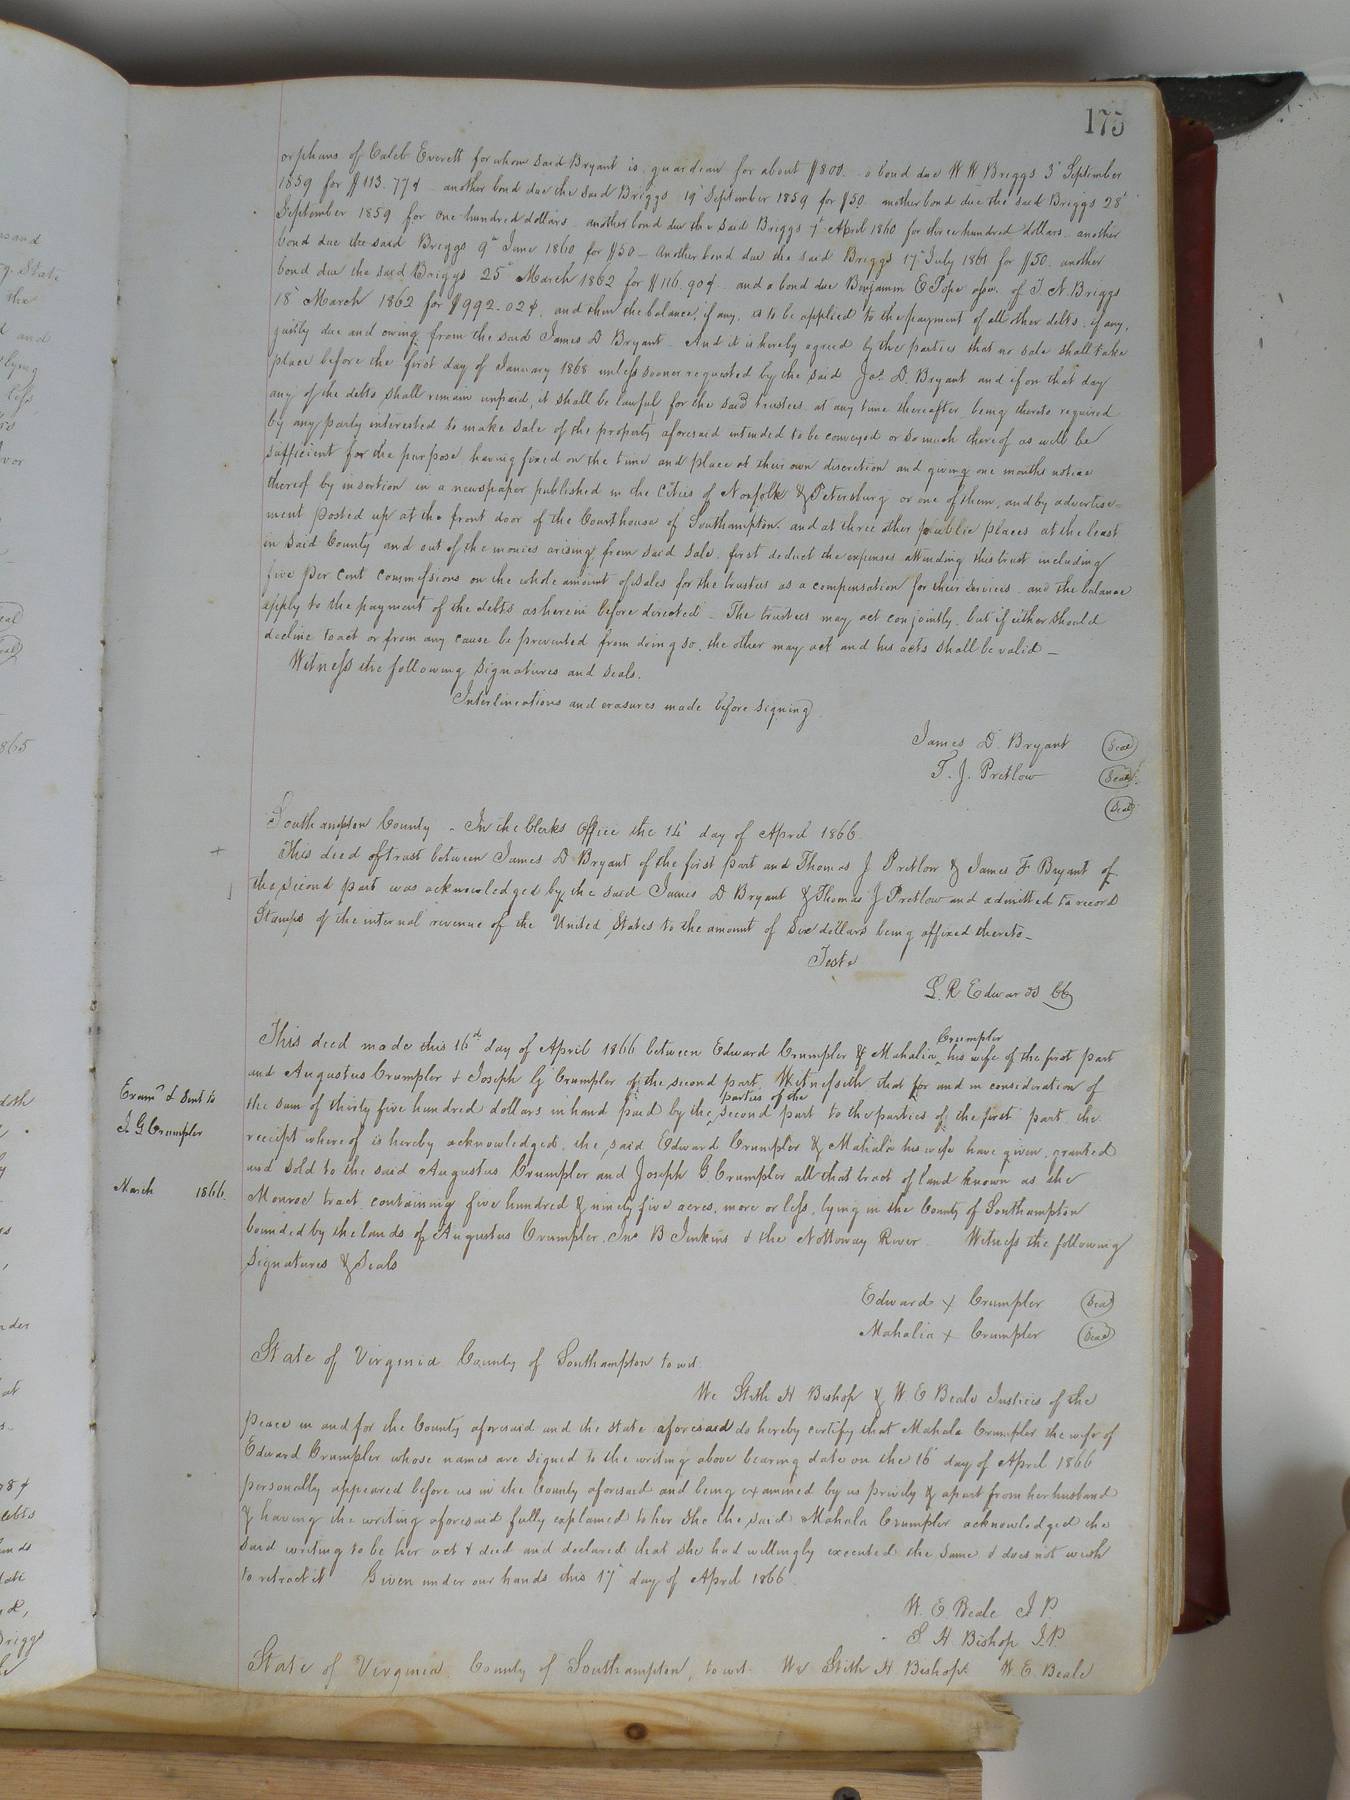 175
orphans of Caleb Everett for whom said Bryant is guardian for about $800. a bond due W W Briggs 3d September
1859 for $113.77¢ another bond due the said Briggs 19 September 1859 for $50. another bond due the said Briggs 28
September 1859 for one hundred dollars. another bond due the said Briggs 7 April 1860 for three hundred dollars another
bond due the said Briggs 9 June 1860 for $50 - Another bond due the said Briggs 17 July 1861 for $50. another
bond due the said Briggs 25 March 1862 for $116.90¢ and a bond due Benjamin E Pope of J N Briggs
18 March 1862 for $992.02¢, and then the balance, if any, is to be applied to the payment of all other debts, if any,
justly due and owing from the said James D Bryant - And it is hereby agreed by the parties that no sale shall take
place before the first day of January 1868 unless sooner requested by the said Jas. D. Bryant and if on that day
any of the debts shall remain unpaid, it shall be lawful for the said trustees at any time thereafter being thereto required
by any party interested to make sale of the property aforesaid intended to be conveyed or so much thereof as will be
sufficient for the purpose having fixed on the time and place at their own discretion and giving one months notice
thereof by insertion in a newspaper published in the Cities of Norfolk & Petersburg or one of them, and by advertise-
ment posted up at the front door of the Courthouse of Southampton and at three other public places at the least
in said County and out of the monies arising from said sale, first deduct the expenses attending this trust including
five per cent commissions on the whole amount of sales for the trustees as a compensation for their services and the balance
apply to the payment of the debts as herein before directed - The trustees may act conjointly, but if either should
decline to act or from any cause be prevented from doing so, the other may act and his acts shall be valid -
Witness the following signatures and seals.
Interlineations and erasures made before signing
James D. Bryant Seal
T. J. Pretlow Seal
Seal
Southampton County - In the Clerks Office the 14 day of April 1866
This deed of trust between James D Bryant of the first part and Thomas J Pretlow & James F Bryant of
the second part was acknowledged by the said James D Bryant & Thomas J Pretlow and admitted to record
Stamps of the internal revenue of the United States to the amount of Six dollars being affixed thereto -
Teste
L. R Edwards CC
Crumpler
This deed made this 16 day of April 1866 between Edward Crumpler & Mahalia his wife of the first part
and Augustus Crumpler & Joseph G Crumpler of the second part. Witnesseth that for and in consideration of
parties of the
the sum of thirty five hundred dollars in hand paid by the second part to the parties of the first part the
receipt whereof is hereby acknowledged, the said Edward Crumpler & Mahala his wife have given, granted
and sold to the said Augustus Crumpler and Joseph G. Crumpler all that tract of land known as the
Monroe tract containing five hundred & ninety five acres, more or less, lying in the County of Southampton
bounded by the lands of Augustus Crumpler, Jno B Jenkins & the Nottoway River Witness the following
Signatures & Seals
Examd & Sent to
J. G Crumpler
March 1866.
Edward x Crumpler Seal
Mahalia x Crumpler Seal
State of Virginia County of Southampton to wit:
We Stith H Bishop & W E Beale Justices of the
Peace in and for the County aforesaid and the state aforesaid do hereby certify that Mahala Crumpler the wife of
Edward Crumpler whose names are signed to the writing above bearing date on the 16 day of April 1866
personally appeared before us in the County aforesaid and being examined by us privily & apart from her husband
& having the writing aforesaid fully explained to her she the said Mahala Crumpler acknowledged the
said writing to be her act & deed and declared that she had willingly executed the same & does not wish
to retract it Given under our hands this 17 day of April 1866
W. E. Beale J.P.
S. H Bishop J.P.
State of Virginia County of Southampton, to wit. We Stith H Bishop W. E. Beale